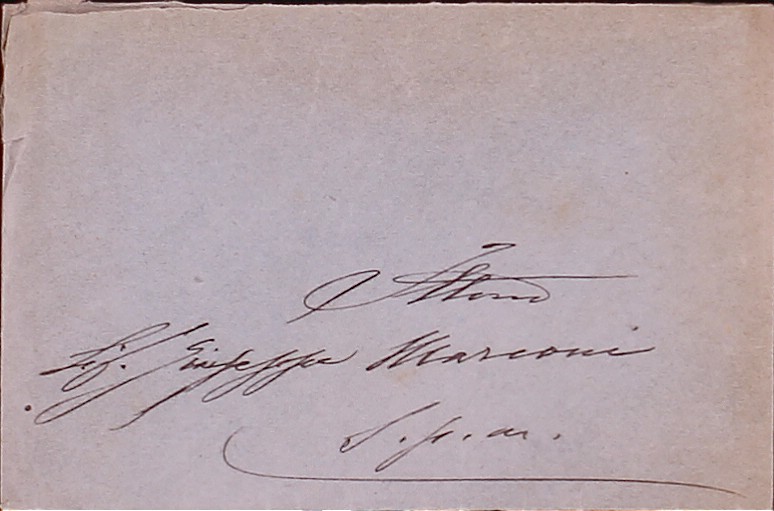 Sig. Giuseppe Marconi
S. p. m.